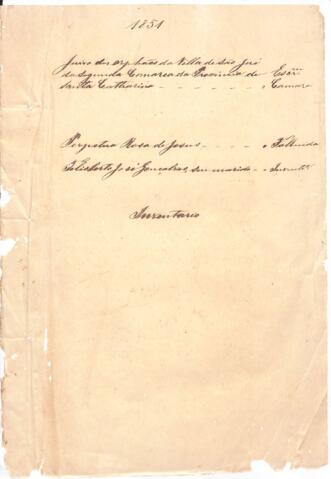 1851
Juizo dos orphaos da Villa de São José
da segunda Comarca da Provincia de Escrm
Santa Catharina - - - - - - - Camara
Perpetua Rosa de Jesus - - - - Fallecida
José Gonçalves, seu marido - Inventte
Inventario